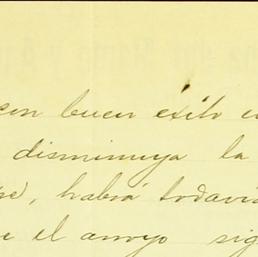 con buen éxito
disminuya la
habrá todavía
el arroyo sig